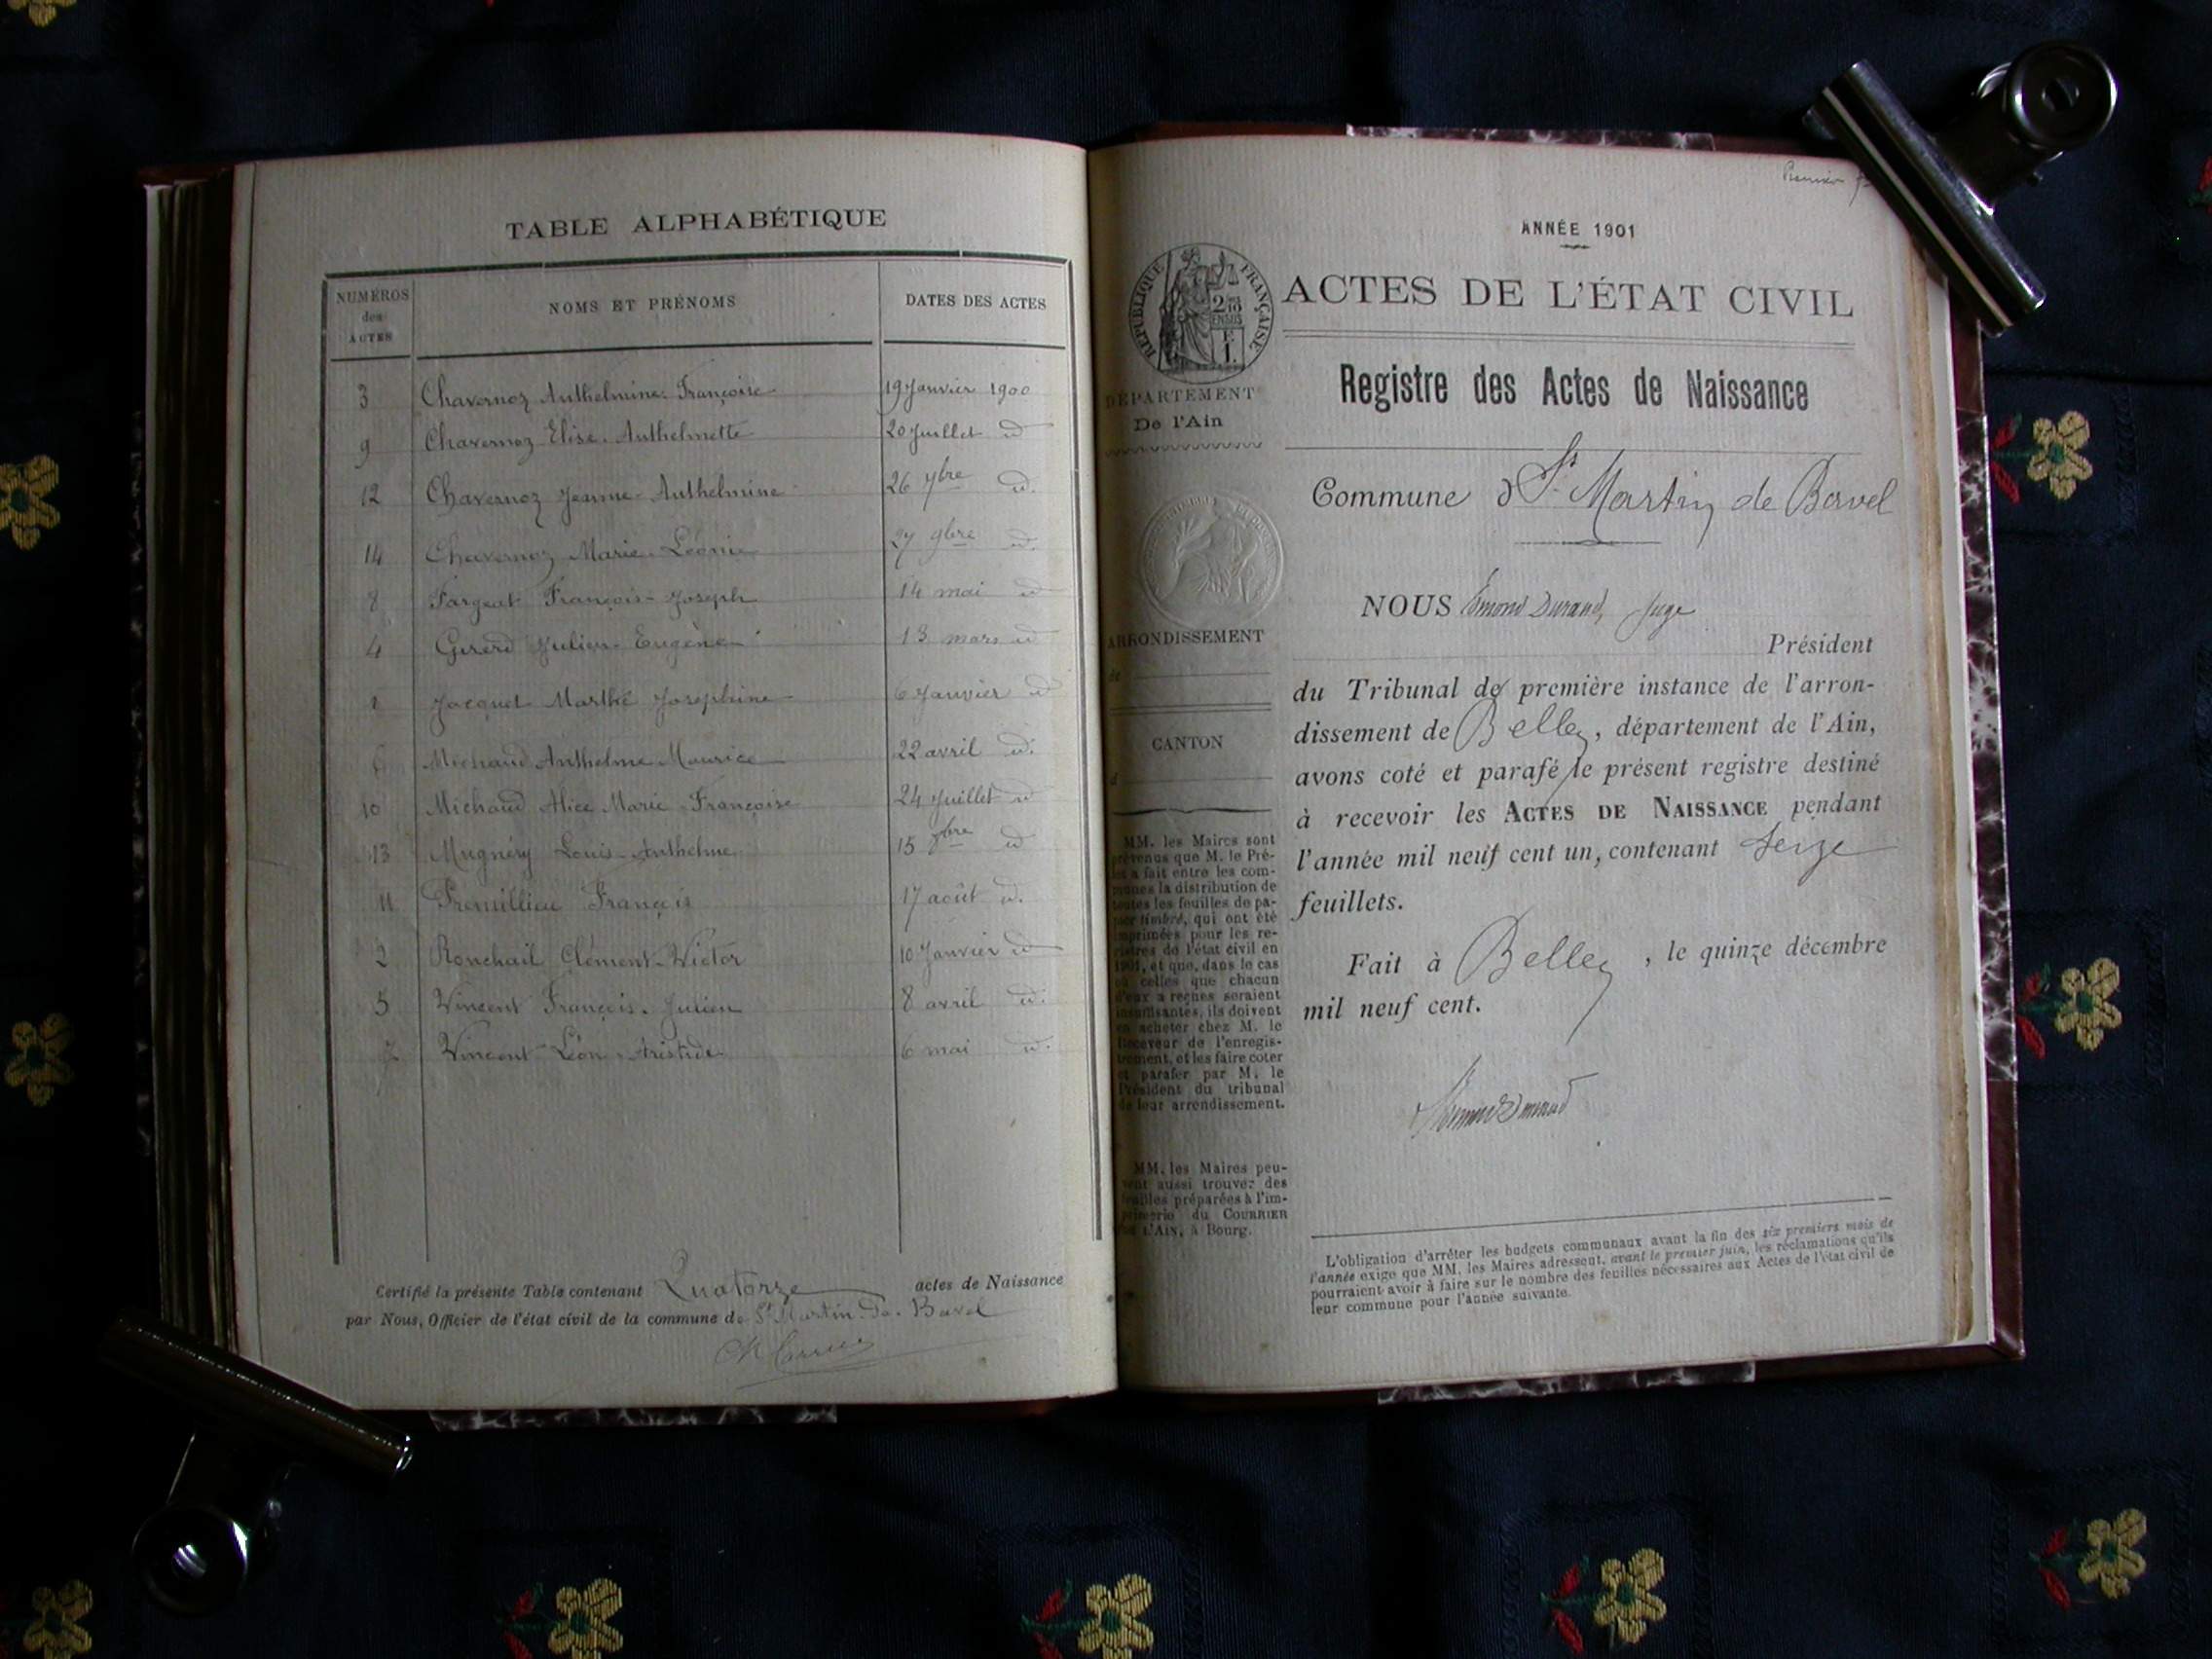 TABLE ALPHABÉTIQUE
NUMÉROS
des
ACTES
NOMS ET PRÉNOMS
DATES DES ACTES
3 Chavernoz Anthelmine Françoise 19 Janvier 1900
9 Chavernoz Elise Anthelmette 20 Juillet d
12 Chavernoz Jeanne Anthelmine 26 7bre d.
14 Chavernoz Marie Léonie 27 9bre d.
8 Fargeat François-Joseph 14 mai d
4 Girerd Julien Eugène 13 mars d
1 Jacquet Marthe Josephine 6 Janvier d
6 Michaud Anthelme Maurice 22 avril d.
10 Michaud Alice Marie Françoise 24 Juillet d
13 Mugnéry Louis-Anthelme 15 bre d
11 Premillieu François 17 août d.
2 Ronchail Clément-Victor 10 Janvier d
5 Vincent François-Julien 8 avril d.
7 Vincent Léon Aristide 6 mai d.
Certifié la présente Table contenant Quatorze actes de Naissance
par Nous, Officier de l'état civil de la commune de St Martin de Bavel
Premier
ANNÉE 1901
RÉPUBLIQUE FRANÇAISE
ACTES DE L'ÉTAT CIVIL
DÉPARTEMENT
De l'Ain
Registre des Actes de Naissance
Commune d St Martin de Bavel
NOUS Emond Durand, Juge
Président
du Tribunal de première instance de l'arron-
dissement de Belley, département de l'Ain,
avons coté et parafé le présent registre destiné
à recevoir les ACTES DE NAISSANCE pendant
l'année mil neuf cent un, contenant seize
feuillets.
Fait à Belley, le quinze décembre
mil neuf cent.
ARRONDISSEMENT
de
CANTON
d
MM. les Maires sont
prévenus que M. le Pré-
fet a fait entre les com-
munes la distribution de
toutes les feuilles de pa-
pier timbré, qui ont été
imprimées pour les re-
gistres de l'état civil en
1901, et que, dans le cas
où celles que chacun
d'eux a reçues seraient
insuffisantes, ils doivent
en acheter chez M. le
Receveur de l'enregis-
trement, et les faire coter
et parafer par M. le
Président du tribunal
de leur arrondissement.
MM. les Maires peu-
vent aussi trouver des
feuilles préparées à l'im-
primerie du COURRIER
DE L'AIN, à Bourg.
L'obligation d'arrêter les budgets communaux avant la fin des six premiers mois de
l'année exige que MM. les Maires adressent, avant le premier juin, les réclamations qu'ils
pourraient avoir à faire sur le nombre des feuilles nécessaires aux Actes de l'état civil de
leur commune pour l'année suivante.